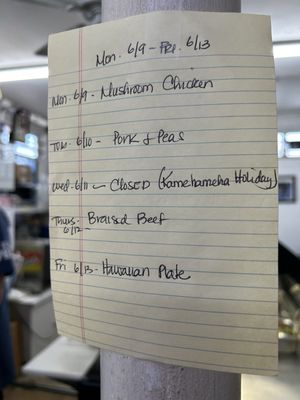 Mon. 6/9 - Fri. 6/13
Mon. 6/9 - Mushroom Chicken
Tues. 6/10 - Pork & Peas
Wed. 6/11 - CLOSED (Kamehameha Holiday)
Thurs. Braised Beef
6/12 -
Fri. 6/13 - Hawaiian Plate